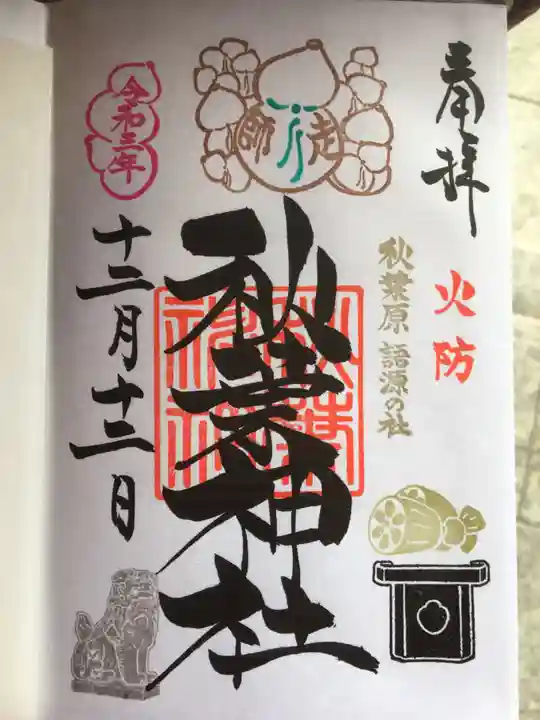 奉拝
火防
秋葉原 語源の社
師走
秋葉神社
秋葉神社
令和三年
十二月十二日